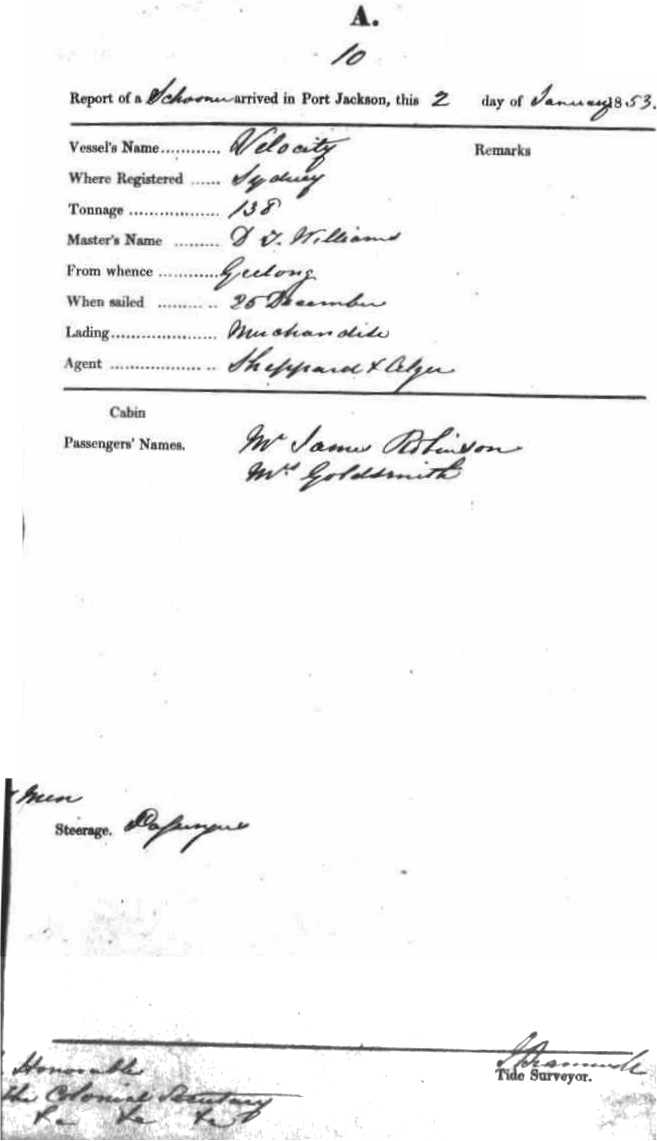 A.
10
Report of a Schooner arrived in Port Jackson, this 2 day of January 1853.
Vessel's Name ............ Velocity Remarks
Where Registered ...... Sydney
Tonnage .................. 138
Master's Name ......... D T. Williams
From whence ............ Geelong
When sailed ............ December
Lading ..................... Merchandise
Agent .................. .. Sheppard & Alger
Cabin
Passengers' Names. Mr James Robinson
Mrs Goldsmith
men
Steerage. Passengers
Tide Surveyor.
Honorable
the Colonial Secretary
&c &c &c